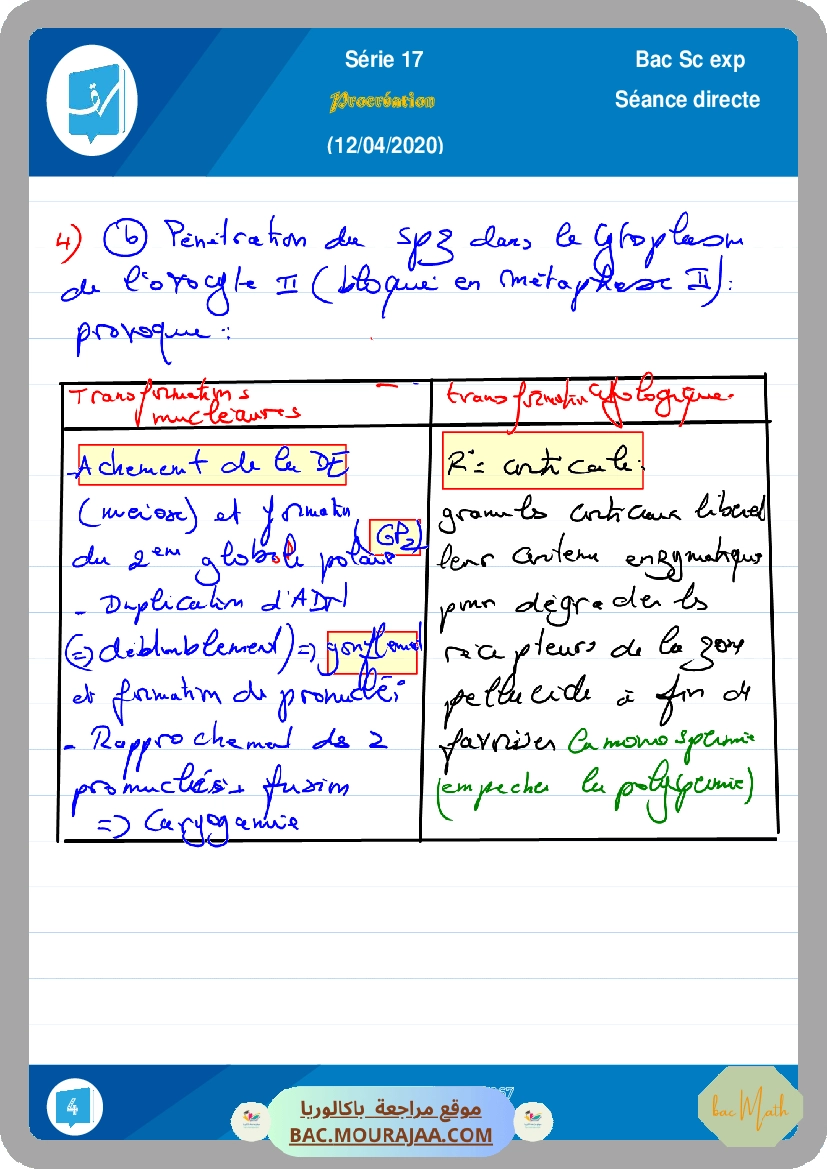 Série 17
Bac Sc exp
Procréation
Séance directe
(12/04/2020)
4) b Pénétration du spz dans le Cytoplasm
de l'ovocyte II (bloqué en métaphase II):
provoque :
Transformations
nucléaires
transformation cytologique.
- Achement de la DE
(meiose) et formation
du 2em globule polaire (GP2)
- Duplication d'ADN
(=> dédoublement) => gonflement
et formation de pronucléi
- Rapprochement des 2
pronucléis + fusion
=> Caryogamie
R° = corticale :
granules corticaux libèrent
leur contenu enzymatique
pour dégrader les
récepteurs de la zone
pellucide à fin de
favoriser la monospermie
(empecher la polyspermie)
4
موقع مراجعة باكالوريا
BAC.MOURAJAA.COM
bac Math